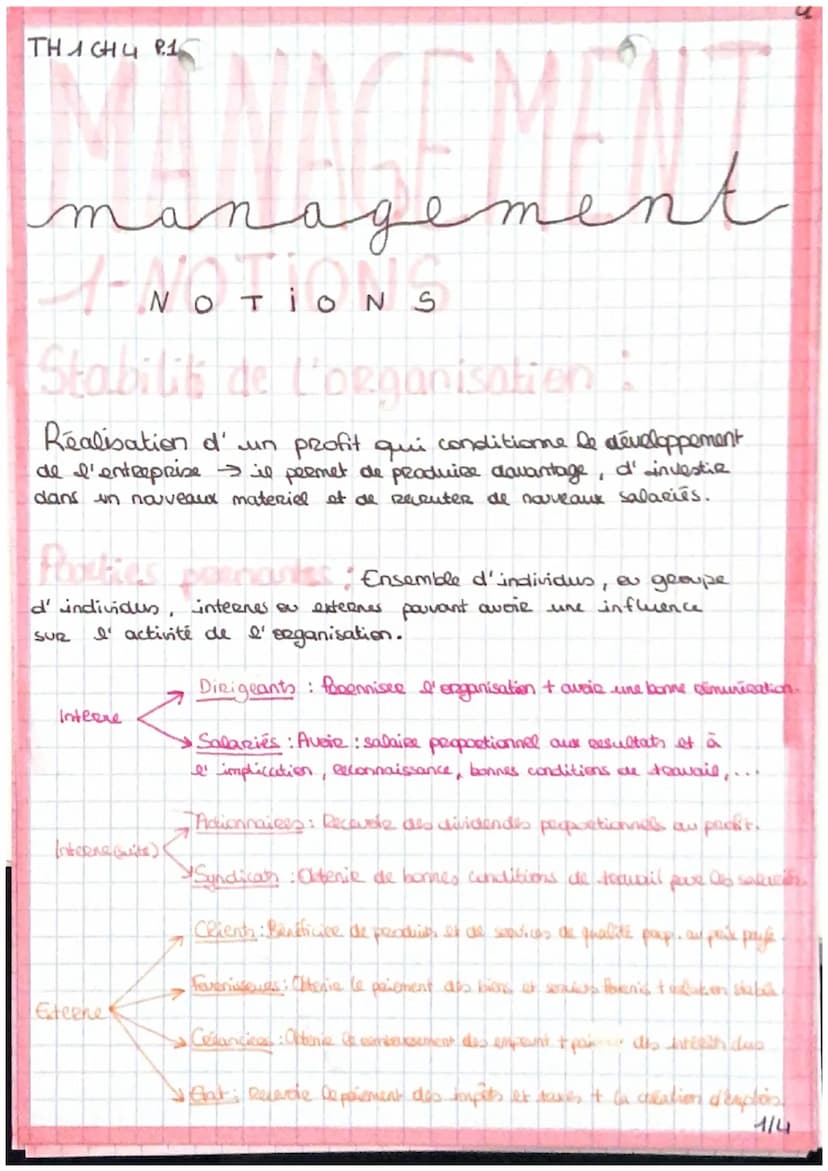 TH1CH4 P.1
MANAGEMENT
management
1-NOTiONS
NOTiONS
Stabilité de l'organisation :
Réalisation d'un profit qui conditionne le développement
de l'entreprise → il permet de produire davantage, d'investir
dans un nouveaux materiel et de recruter de nouveaux salariés.
Parties prenantes : Ensemble d'individus, ou groupe
d'individus, internes ou externes pouvant avoir une influence
sur l'activité de l'organisation.
Dirigeants : Pérenniser l'organisation + avoir une bonne rémunération.
Interne
Salariés : Avoir : salaire proportionnel aux resultats et à
l'implication, reconnaissance, bonnes conditions de travail,...
Actionnaires : Recevoir des dividendes proportionnels au profit.
Interne(suite)
Syndicats : Obtenir de bonnes conditions de travail pour les salariés.
Clients : Bénéficier de produits et de services de qualité prop. au prix payé
Fournisseurs : Obtenir le paiement des biens et services fournis + relation stable
Externe
Créanciers : Obtenir le remboursement des emprunt + des intérêts dus
Etat : Recevoir le paiement des impôts et taxes + la création d'emplois.
1/4